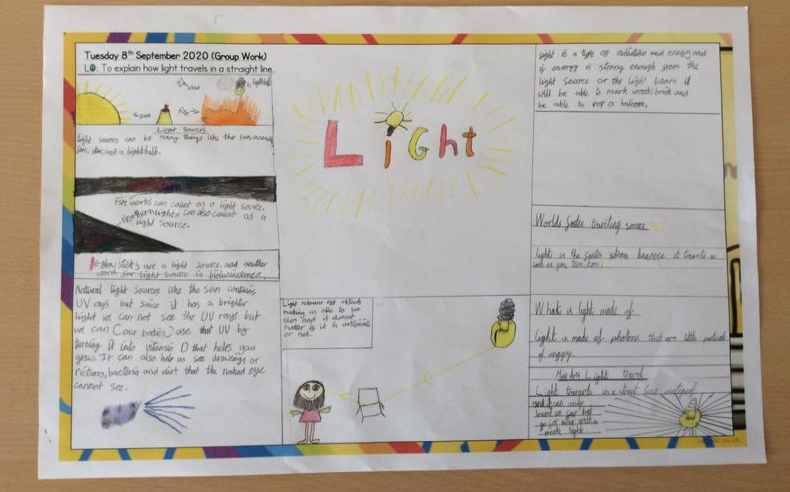 Tuesday 8th September 2020 (Group Work)
LO: To explain how light travels in a straight line.
star
Lightbulb
sun
Fire
Light Sources
Light sources can be many things like the sun, a candle,
fire, star, and a lightbulb.
Fire works can count as a light source.
Northern lights can also count as a
light source.
Glow sticks are a light source and another
word for light source is bioluminesence.
Natural light sources like the sun contains
UV rays but since it has a brighter
light we can not see the UV rays but
we can (our bodies) use that UV by
turning it into vitamin D that helps you
grow. It can also help us see drawings or
pictures, bacteria and dirt that the naked eye
cannot see.
Light
Light
making us able to see
them and it doesnt
matter if it is artificial
or not.
Light is a type of radiation and energy and
if energy is strong enough from the
light source or the light beam it
will be able to mark wood, brick and
be able to pop a baloon.
Worlds faster traviling
light is the faster
What is light made of
Light is made of photons that are little
of energy.
How does Light travel
Light travels in a strait line
and it can only
travel so far but